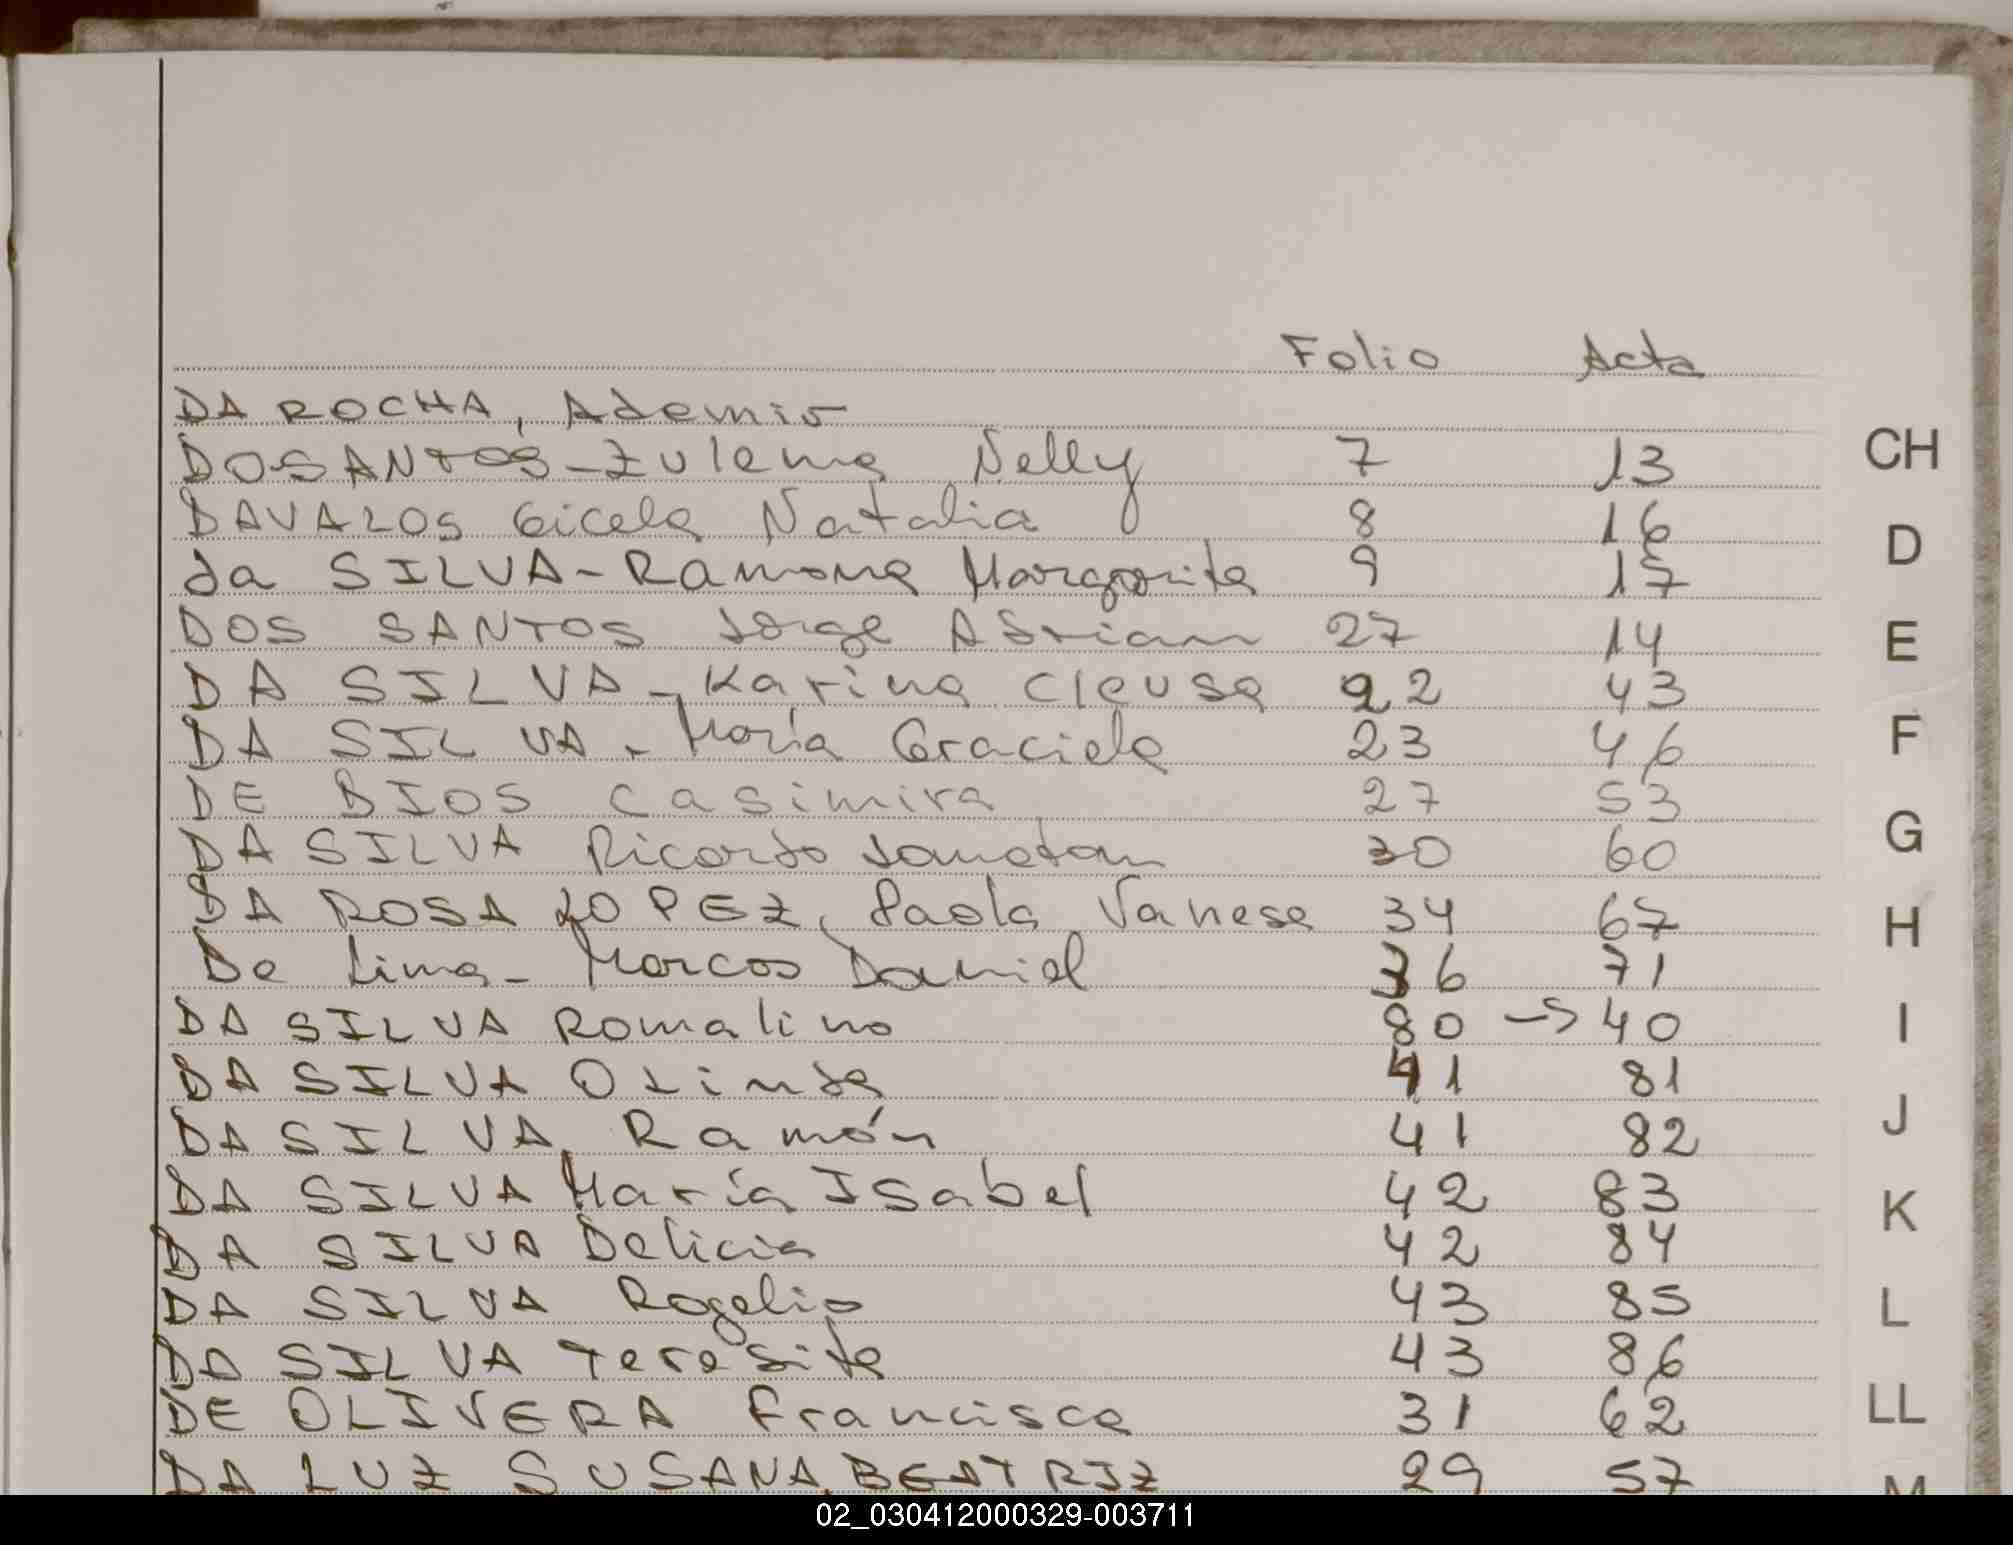 Folio Acta
DA ROCHA, Ademir
DOSANTOS-Zulema Nelly 7 13
CH
DAVALOS Gicela Natalia 8 16
D
da SILVA-Ramona Margarita 9 17
DOS SANTOS Jorge Adrian 27 14
E
DA SILVA-Karina Cleusa 22 43
DA SILVA-María Graciela 23 46
F
DE BIOS Casimira 27 53
DA SILVA Ricardo Jonatan 30 60
G
DA ROSA LOPEZ, Paola Vanesa 34 67
H
De Lima-Marcos Daniel 36 71
DA SILVA Romalino 80 -> 40
I
DA SILVA Olinda 41 81
DA SILVA Ramón 41 82
J
DA SILVA María Isabel 42 83
K
DA SILVA Delicia 42 84
DA SILVA Rogelio 43 85
L
DA SILVA Teresita 43 86
DE OLIVERA Francisca 31 62
LL
DA LUZ SUSANA BEATRIZ 29 57
M
02_030412000329-003711